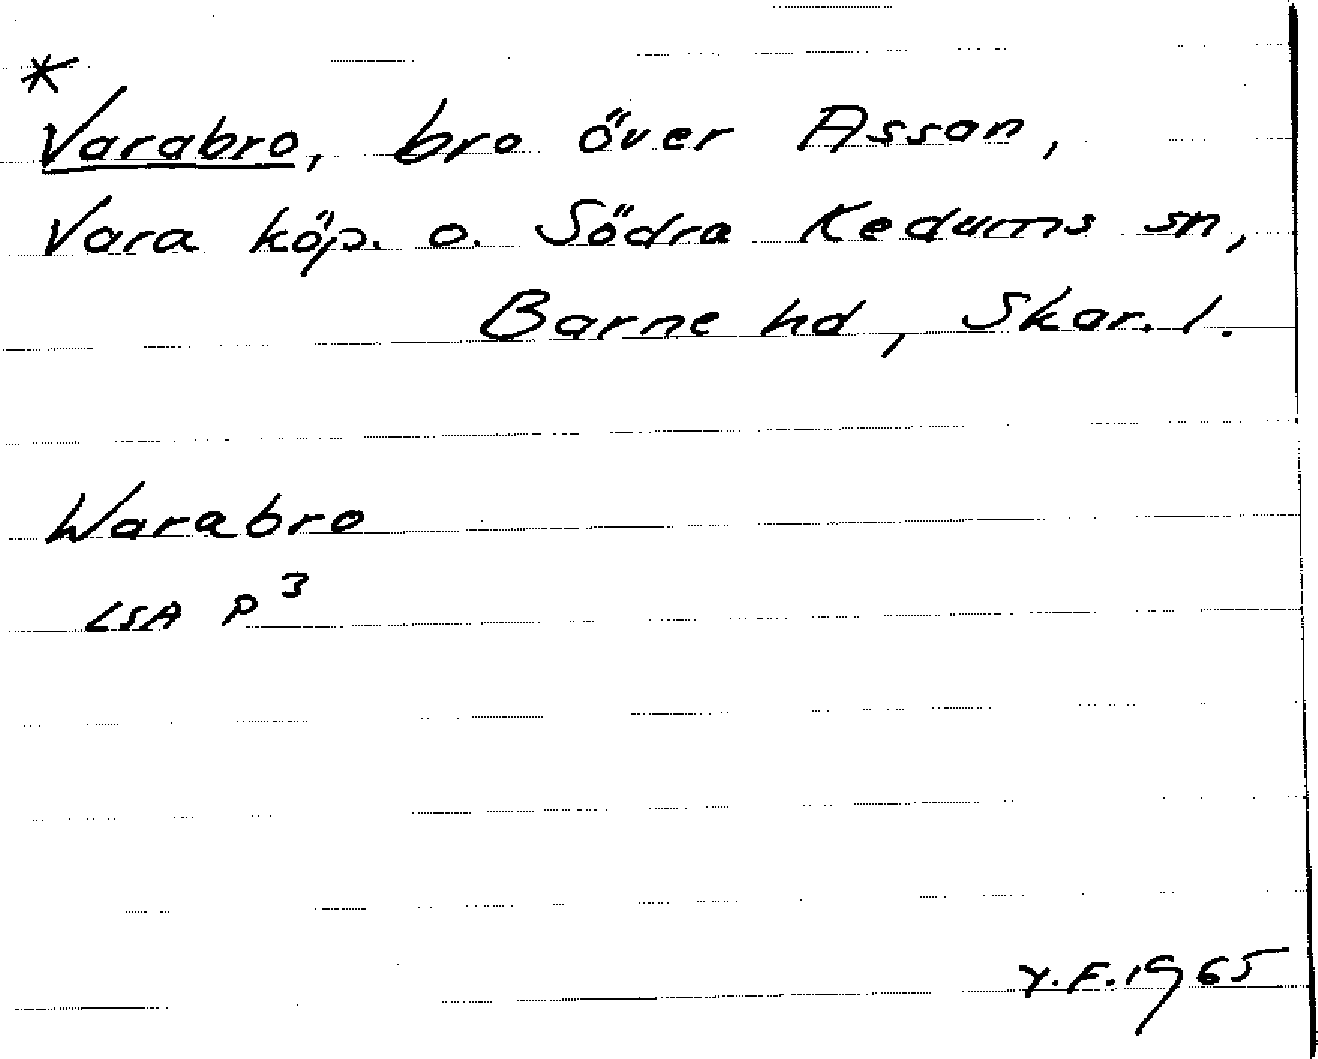 *
Varabro, bro över Assan,
Vara köp. o. Södra Kedums sn,
Barne hd, Skar. l.
Warabro
LSA P³
Y.F. 1965